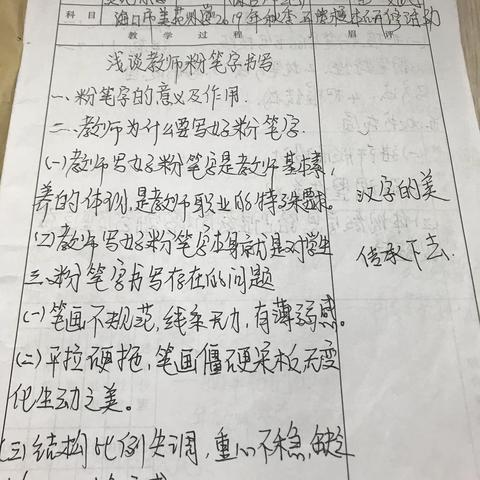 科目 海口市美苑小学2019年秋季
教学过程 眉批
浅谈教师粉笔字书写
一、粉笔字的意义及作用.
二、教师为什么要写好粉笔字.
(一)教师写好粉笔字是教师基本素
养的体现,是教师职业的特殊要求。
(二)教师写好粉笔字本身就是对学生
汉字的美
传承下去.
三、粉笔字书写存在的问题
(一)笔画不规范,线条无力,有薄弱感。
(二)平拉硬拖,笔画僵硬呆板无变
化生动之美。
(三)结构比例失调,重心不稳,缺乏